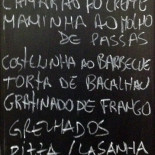 CAMARÃO AO CREME
MAMINHA AO MOLHO
DE PASSAS
COSTELINHA AO BARBECUE
TORTA DE BACALHAU
GRATINADO DE FRANGO
GRELHADOS
PIZZA / LASANHA